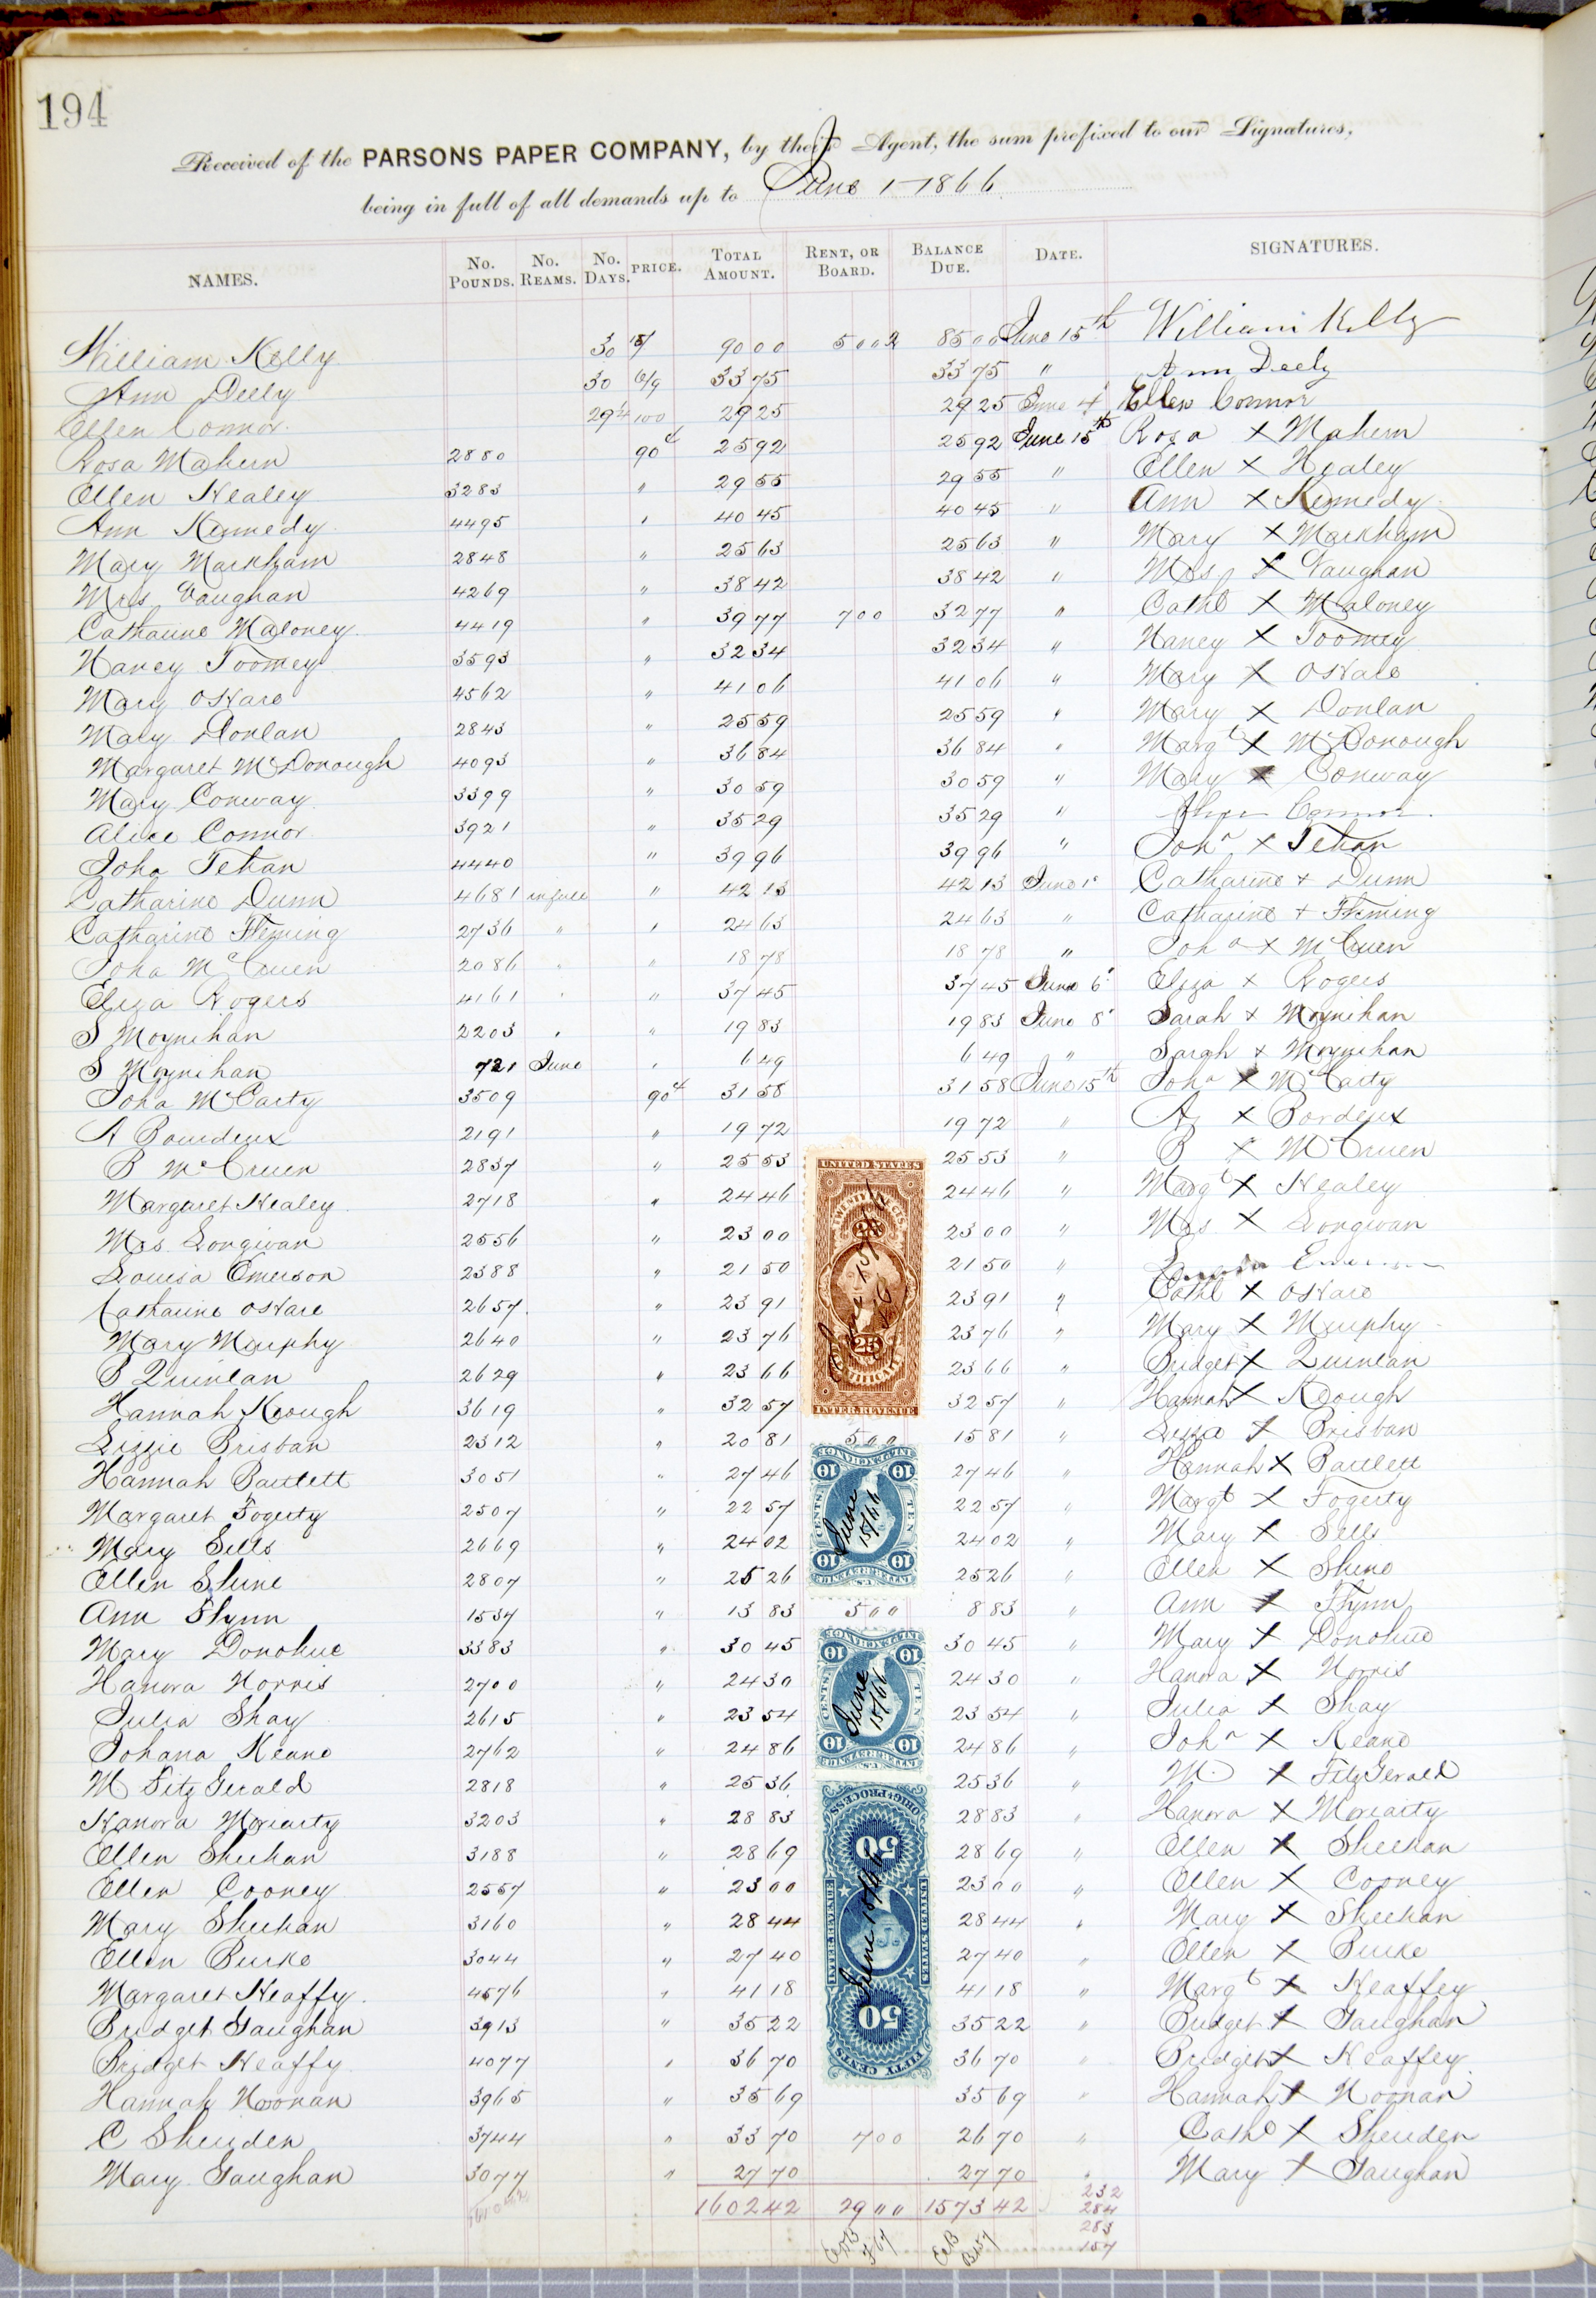 194
Received of the PARSONS PAPER COMPANY, by their Agent, the sum prefixed to our Signatures,
being in full of all demands up to June 1 1866
NAMES. No. Pounds. No. Reams. No. Days. PRICE. Total Amount. Rent, or Board. Balance Due. Date. SIGNATURES.
William Kelly 30 90 00 5 00 85 00 June 15th William Kelly
Ann Deely 30 6/9 33 75 33 75 " Ann Deely
Ellen Connor 29¼ 100 29 25 29 25 June 4 Ellen Connor
Rosa Mahern 2880 90 25 92 25 92 June 15th Rosa X Mahern
Ellen Healey 3283 " 29 55 29 55 " Ellen X Healey
Ann Kennedy 4495 " 40 45 40 45 " Ann X Kennedy
Mary Markham 2848 " 25 63 25 63 " Mary X Markham
Mrs Vaughan 4269 " 38 42 38 42 " Mrs X Vaughan
Catharine Maloney 4419 " 39 77 7 00 32 77 " Cath X Maloney
Nancy Toomey 3593 " 32 34 32 34 " Nancy X Toomey
Mary OHare 4562 " 41 06 41 06 " Mary X OHare
Mary Donlan 2843 " 25 59 25 59 " Mary X Donlan
Margaret McDonough 4093 " 36 84 36 84 " Margt X McDonough
Mary Conway 3399 " 30 59 30 59 " Mary X Conway
Alice Connor 3921 " 35 29 35 29 " Connor
Joha Tehan 4440 " 39 96 39 96 " Joha X Tehan
Catharine Dunn 4681 in full " 42 13 42 13 June 1 Catharine + Dunn
Catharine Fleming 2736 " " 24 63 24 63 " Catharine + Fleming
Joha McCruen 2086 " " 18 78 18 78 " Joha X McCruen
Eliza Rogers 4161 " " 37 45 37 45 June 6 Eliza X Rogers
S Moynihan 2203 " " 19 83 19 83 June 8 Sarah X Moynihan
S Moynihan 721 June " 6 49 6 49 " Sargh X Moynihan
Joha McCarty 3509 90 31 58 31 58 June 15th Joha X McCarty
A Bourdeux 2191 " 19 72 19 72 " A X Bordeux
B McCruen 2837 " 25 53 25 53 " B X McCruen
Margaret Healey 2718 " 24 46 24 46 " Margt X Healey
Mrs Longivan 2556 " 23 00 23 00 " Mrs X Longivan
Louisa Emerson 2388 " 21 50 21 50 "
Catharine OHare 2657 " 23 91 23 91 " Cath X OHare
Mary Murphy 2640 " 23 76 23 76 " Mary X Murphy
B Quinlan 2629 " 23 66 23 66 " Bridget X Quinlan
Hannah Keough 3619 " 32 57 32 57 " Hannah X Keough
Lizzie Brisban 2312 " 20 81 5 00 15 81 " Lizzie X Brisban
Hannah Bartlett 3051 " 27 46 27 46 " Hannah X Bartlett
Margaret Fogerty 2507 " 22 57 22 57 " Margt X Fogerty
Mary Sells 2669 " 24 02 24 02 " Mary X Sells
Ellen Shine 2807 " 25 26 25 26 " Ellen X Shine
Ann Flynn 1537 " 13 83 5 00 8 83 " Ann X Flynn
Mary Donohue 3383 " 30 45 30 45 " Mary X Donohue
Hanora Norris 2700 " 24 30 24 30 " Hanora X Norris
Julia Shay 2615 " 23 54 23 54 " Julia X Shay
Johana Keane 2762 " 24 86 24 86 " Joha X Keane
M FitzGerald 2818 " 25 36 25 36 " M X FitzGerald
Hanora Moriarty 3203 " 28 83 28 83 " Hanora X Moriarty
Ellen Sheehan 3188 " 28 69 28 69 " Ellen X Sheehan
Ellen Cooney 2557 " 23 00 23 00 " Ellen X Cooney
Mary Sheehan 3160 " 28 44 28 44 " Mary X Sheehan
Ellen Burke 3044 " 27 40 27 40 " Ellen X Burke
Margaret Heaffy 4576 " 41 18 41 18 " Margt X Heaffey
Bridget Gaughan 3913 " 35 22 35 22 " Bridget X Gaughan
Bridget Heaffy 4077 " 36 70 36 70 " Bridget X Heaffey
Hannah Noonan 3965 " 35 69 35 69 " Hannah X Noonan
C Sheriden 3744 " 33 70 7 00 26 70 " Cath X Sheriden
Mary Gaughan 3077 " 27 70 27 70 " Mary X Gaughan
1602 42 29 " 1573 42
232
284
283
157
UNITED STATES
25
CERTIFICATE
INTER. REVENUE
10 10
TEN CENTS
June 15/66
10 10
TEN CENTS
June 15/66
ORIG. PROCESS
50
INTER. REVENUE UNITED STATES
June 15/66
50
FIFTY CENTS